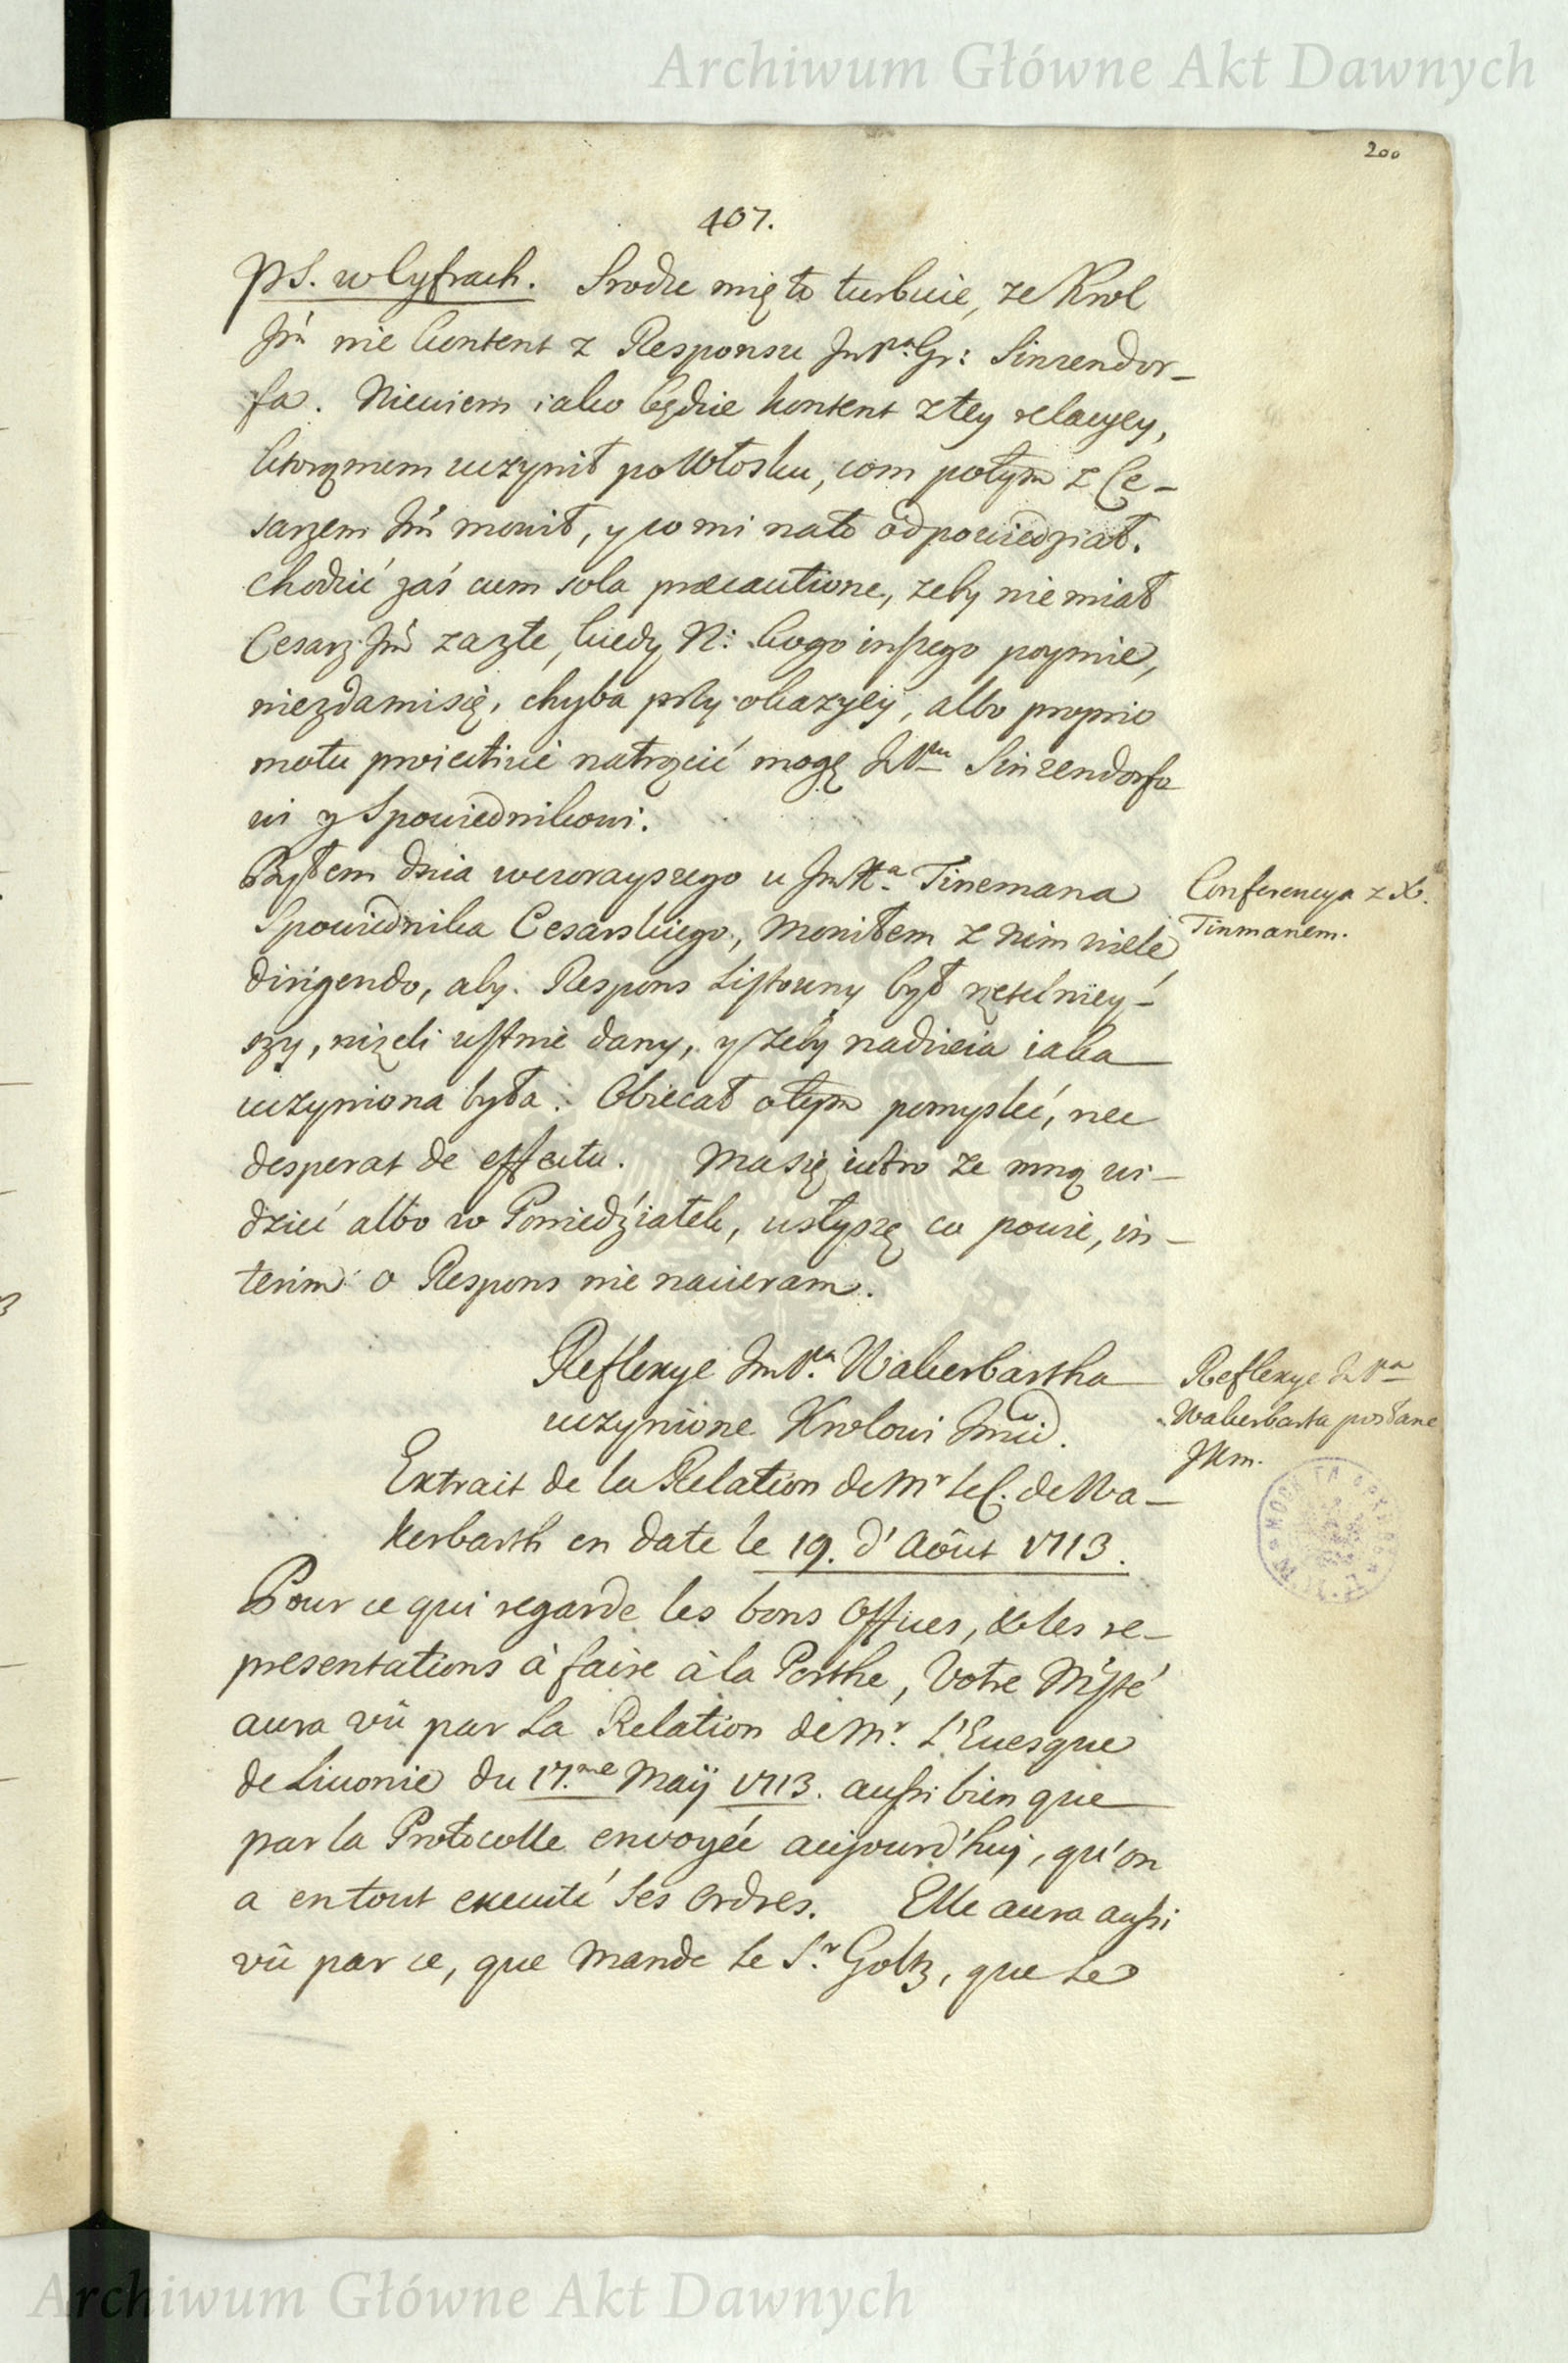 Archiwum Główne Akt Dawnych
200
407.
PS. w Cyfrach. Srodze mię to turbuie, ze Krol
Jm̃ nie kontent z Responsu JmPa. Gr: Sinzendor-
fa. Niewiem iako będzie kontent z tey relacyey,
ktorąmem uczynił po Włosku, com potym z Ce-
sarzem Jm̃ mowił, y co mi nato odpowiedział.
Chodzić zaś cum sola præcautione, zeby nie miał
Cesarz Jm̃ za złe, kiedy N: kogo inszego poymie,
niezdamisię, chyba przy okazyey, albo proprio
motu proiective natrącić mogę JmPnu Sinzendorfo
wi y Spowiednikowi.
Byłem dnia wczorayszego u JmXa. Tinemana
Spowiednika Cesarskiego, Mowiłem z nim wiele
dirigendo, aby Respons Listowny był rzetelniey-
szy, niżeli ustnie dany, y zeby nadzieia iaka
uczyniona była. Obiecał o tym pomyslić, nec
desperat de effectu. Ma się iutro ze mną wi-
dzieć albo w Poniedźiałek, usłyszę co powie, in-
terim o Respons nie nacieram.
Conferencya z X.
Tinmanem.
Reflexye JmPa. Wakerbartha
uczynione Krolowi Jmći.
Reflexye JmPa
Wakerbarta posłane
JKm.
Extrait de la Relation de Mr le C. de Wa-
kerbarth en date le 19. d'Aôut 1713.
Pour ce qui regarde les bons Offices, & les re-
presentations à faire à la Porthe, Votre Mjsté
aura vû par La Relation de Mr. L'Euesque
de Liuonie du 17.me Maÿ 1713. aussi bien que
par la Protocolle envoyée aujourd'huy, qu'on
a en tout executé ses Ordres. Elle aura aussi
vû par ce, que Mande Le Sr. Goltz, que Le
Archiwum Główne Akt Dawnych